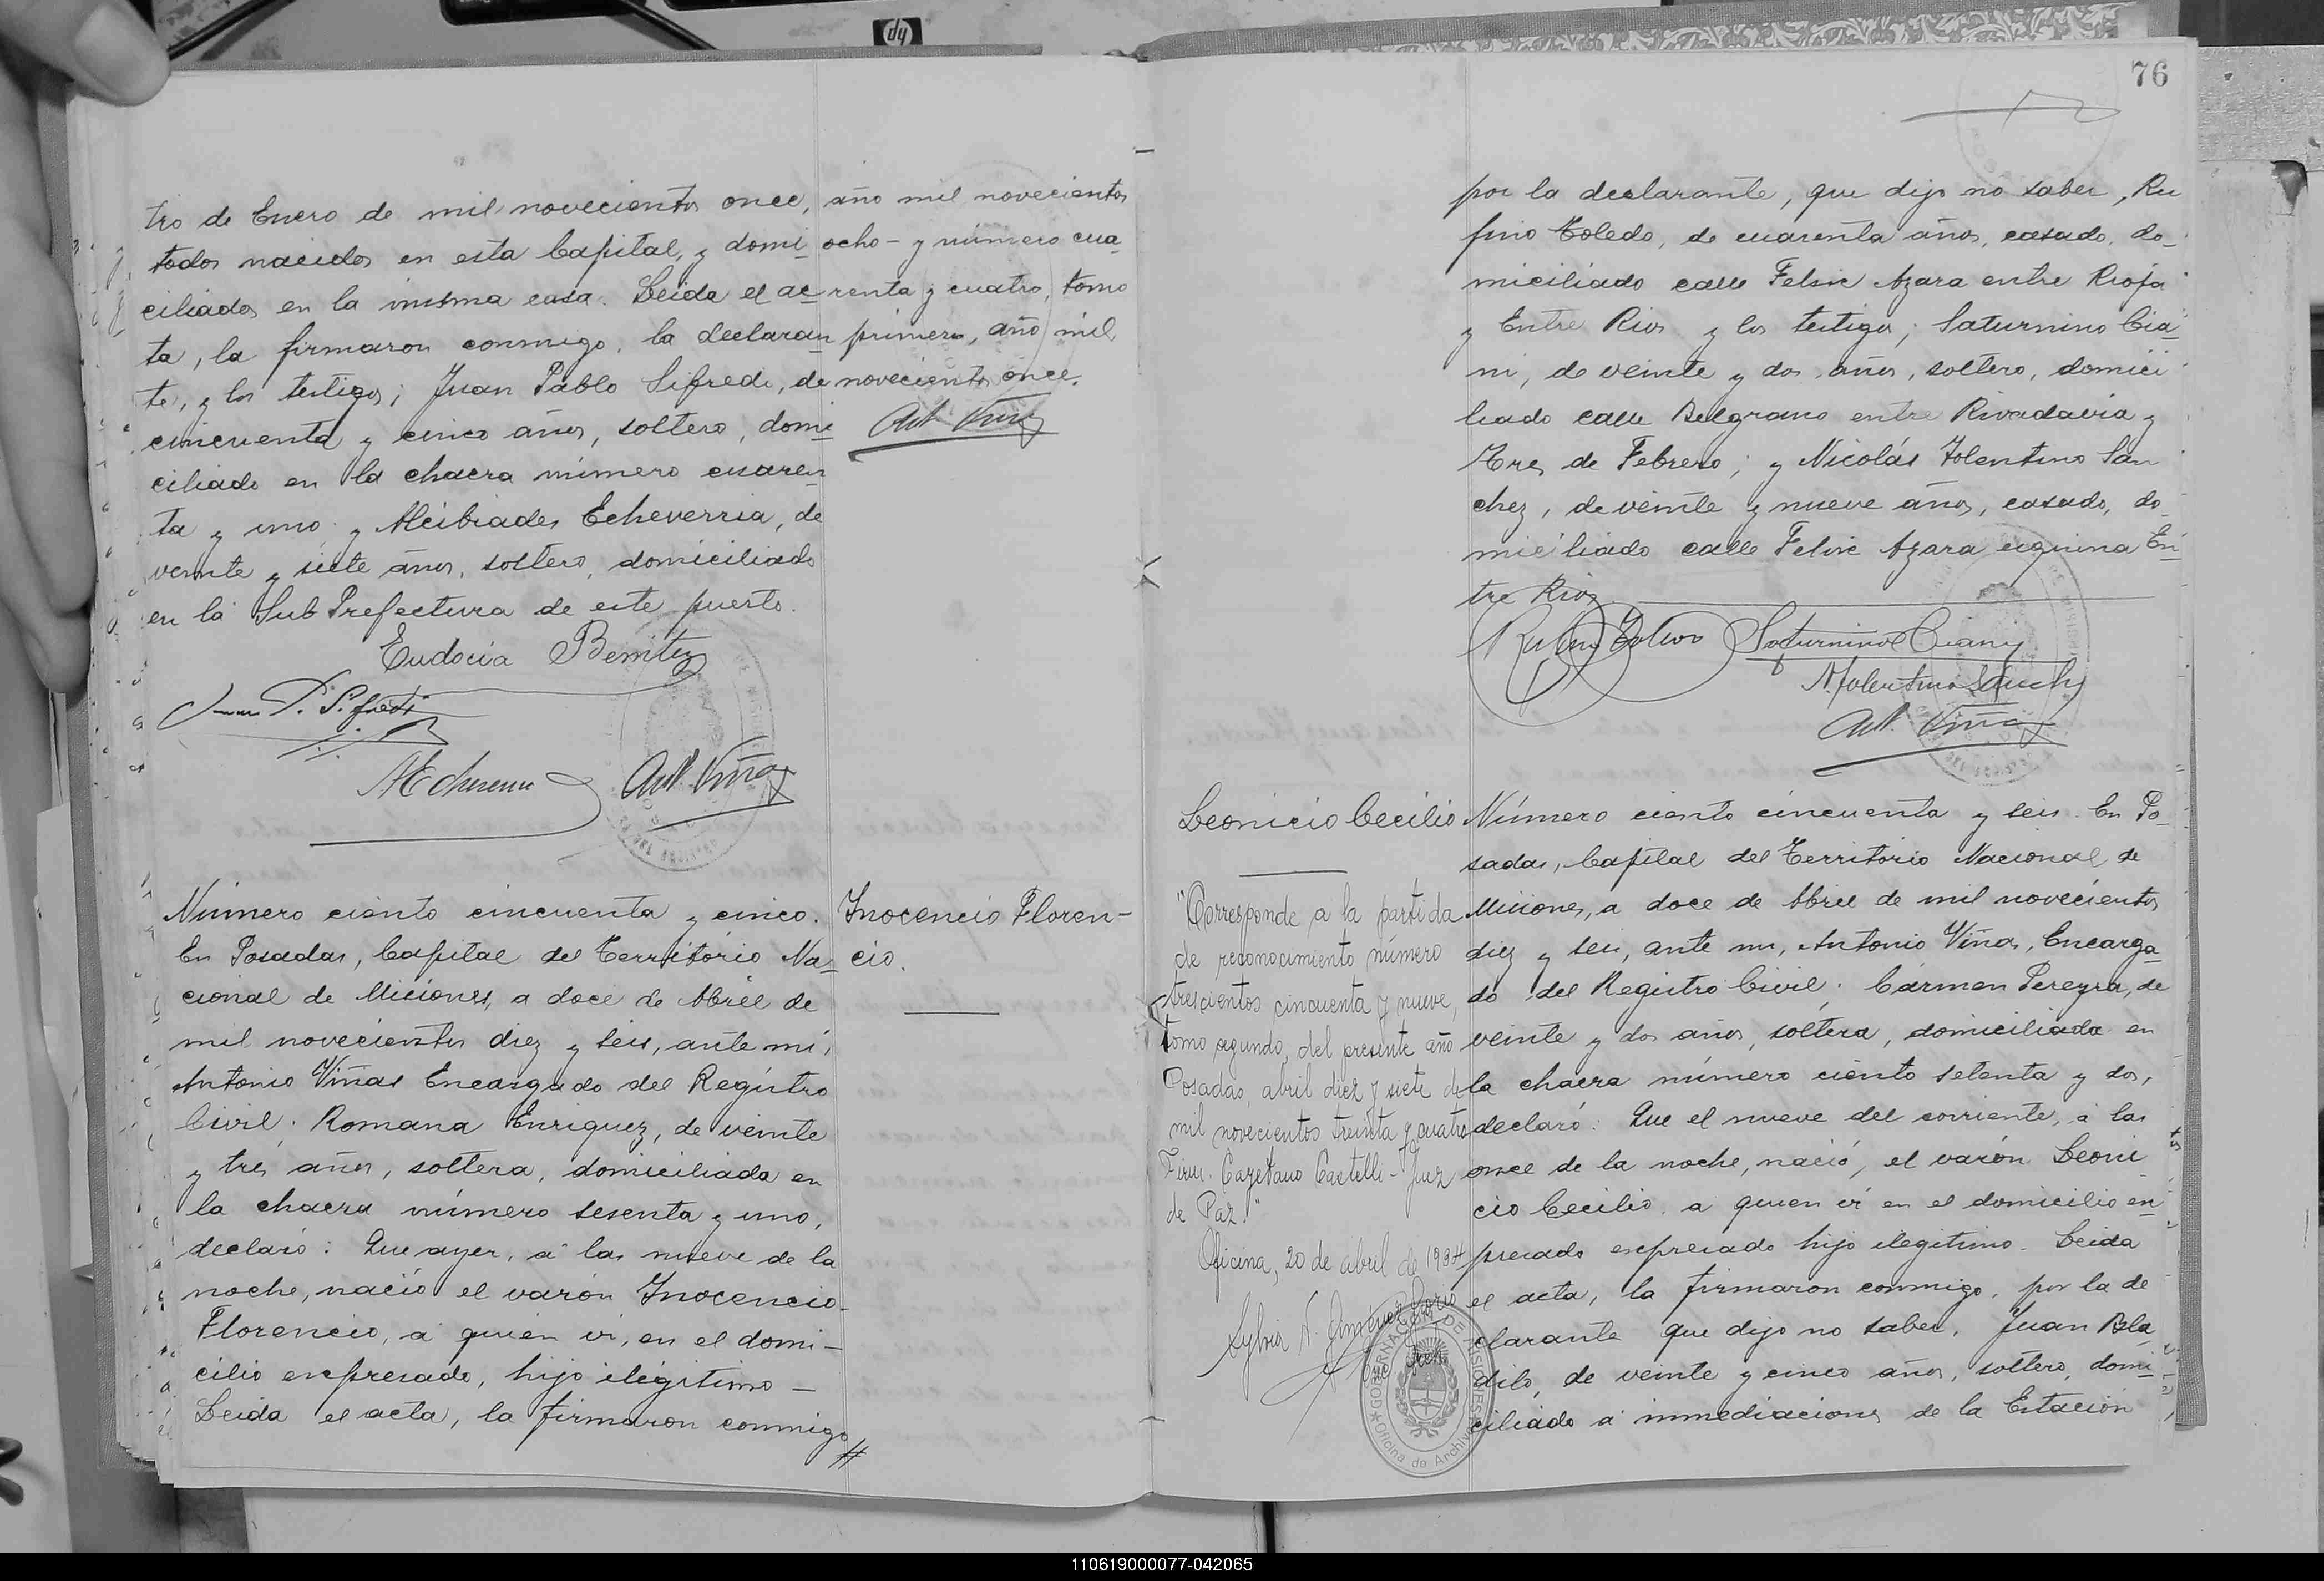 tro de Enero de mil novecientos once,
todos nacidos en esta Capital, y domi
ciliados en la misma casa. Leida el ac
ta, la firmaron conmigo, la declaran
te, y los testigos; Juan Pablo Sifredi, de
cincuenta y cinco años, soltero, domi
ciliado en la chacra número cuaren
ta y uno; y Alcibiades Echeverria, de
veinte y siete años, soltero, domiciliado
en la Sub Prefectura de este puerto.
Eudocia Benitez
Juan P. Sifredi
AEcheverria Ant. Viñas
año mil novecientos
ocho - y número cua
renta y cuatro, tomo
primero, año mil
novecientos once.
Ant. Viñas
Número ciento cincuenta y cinco.
En Posadas, Capital del Territorio Na
cional de Misiones, a doce de Abril de
mil novecientos diez y seis, ante mí,
Antonio Viñas Encargado del Registro
Civil; Romana Enriquez, de veinte
y tres años, soltera, domiciliada en
la chacra número sesenta y uno,
declaró: Que ayer, a las nueve de la
noche, nació el varón Inocencio
Florencio, a quien vi, en el domi-
cilio expresado, hijo ilegitimo -
Leida el acta, la firmaron conmigo
Inocencio Floren-
cio.
76
por la declarante, que dijo no saber, Ru
fino Toledo, de cuarenta años, casado, do-
miciliado calle Felix Azara entre Rioja
y Entre Rios y los testigos; Saturnino Cia
ni, de veinte y dos años, soltero, domici
liado calle Belgrano entre Rivadavia y
Tres de Febrero; y Nicolás Tolentino San
chez, de veinte y nueve años, casado, do
miciliado calle Felix Azara esquina En
tre Rios
Rufino Toledo Saturnino Ciani
N. Tolentino Sanchez
Ant. Viñas
Leonicio Cecilio
"Corresponde a la partida
de reconocimiento número
trescientos cincuenta y nueve,
tomo segundo, del presente año
Posadas, abril diez y siete de
mil novecientos treinta y cuatro
Firm. Cayetano Castelli - Juez
de Paz."
Oficina, 20 de abril de 1934
GOBERNACION DE MISIONES
Oficina de Archivo
Número ciento cincuenta y seis. En Po
sadas, Capital del Territorio Nacional de
Misiones, a doce de Abril de mil novecientos
diez y seis, ante mi, Antonio Viñas, Encarga
do del Registro Civil; Cármen Pereyra, de
veinte y dos años, soltera, domiciliada en
la chacra número ciento setenta y dos,
declaró: Que el nueve del corriente, a las
once de la noche, nació, el varón Leoni
cio Cecilio, a quien vi en el domicilio ex
presado expresado hijo ilegitimo. Leida
el acta, la firmaron conmigo, por la de
clarante que dijo no saber, Juan Bla
dilo, de veinte y cinco años, soltero, domi
ciliado a inmediaciones de la Estación
110619000077-042065